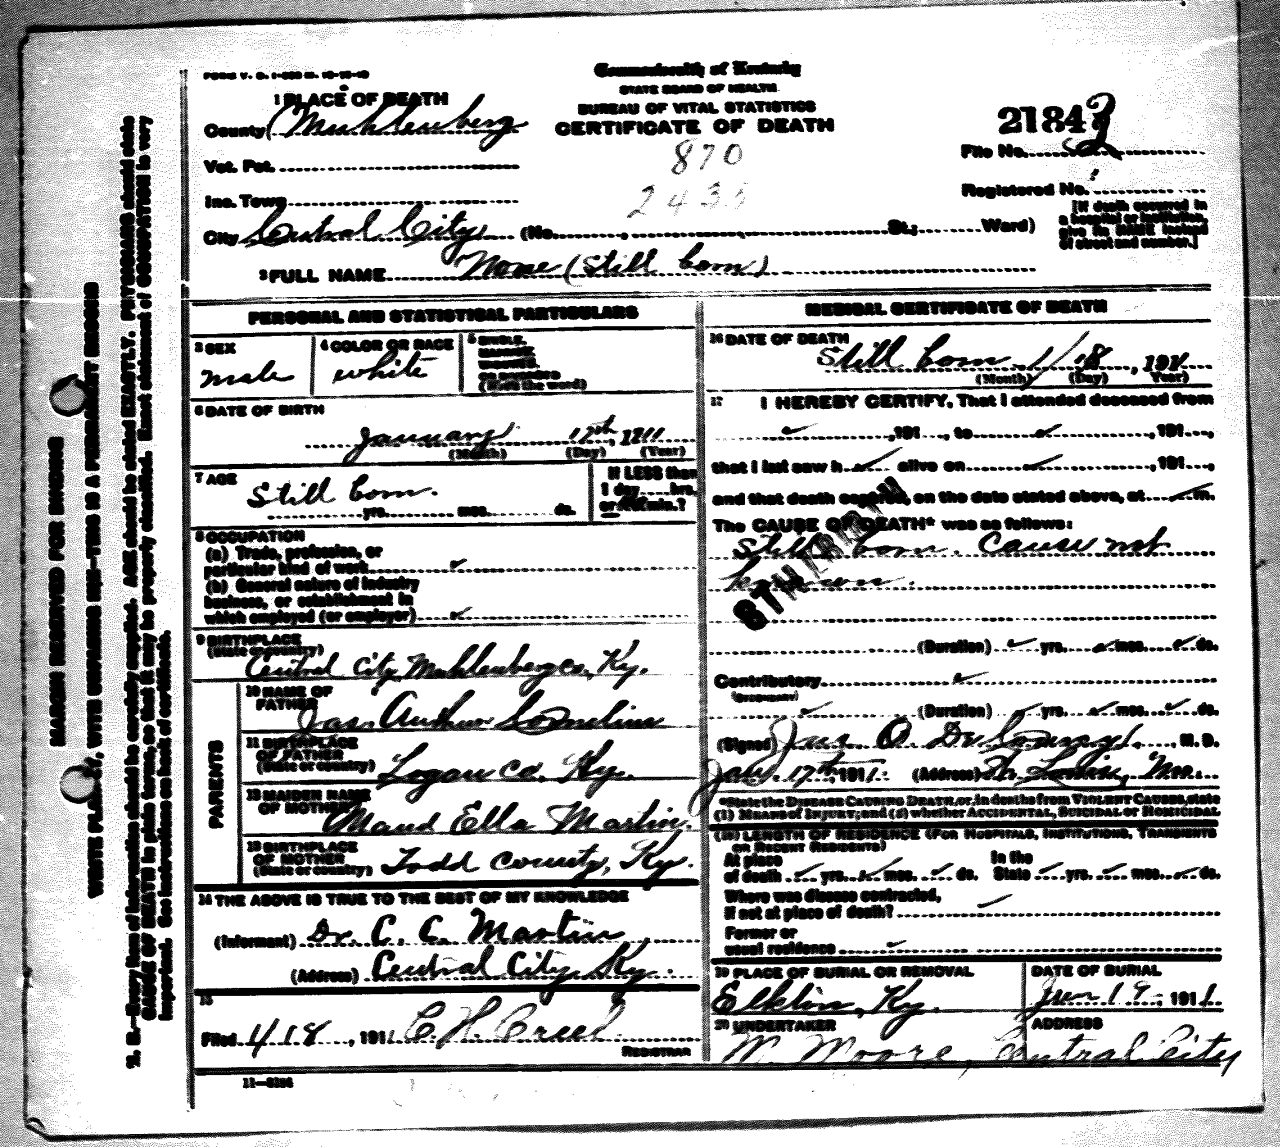 FORM V. S. 1-
Commonwealth of Kentucky
STATE BOARD OF HEALTH
BUREAU OF VITAL STATISTICS
CERTIFICATE OF DEATH
1 PLACE OF DEATH
County Muhlenberg
Vot. Pct.
Inc. Town
City Central City (No. St.; Ward)
870
2435
2184
File No.
Registered No.
[If death occurred in
a hospital or institution,
give its NAME instead
of street and number.]
2 FULL NAME None (Still born)
PERSONAL AND STATISTICAL PARTICULARS
3 SEX
male
4 COLOR OR RACE
white
5 SINGLE,
MARRIED,
WIDOWED,
OR DIVORCED
(Write the word)
6 DATE OF BIRTH
January 17th, 1911
(Month) (Day) (Year)
7 AGE
Still born.
yrs. mos. ds.
If LESS than
1 day, hrs.
or min.?
8 OCCUPATION
(a) Trade, profession, or
particular kind of work
(b) General nature of industry
business, or establishment in
which employed (or employer)
9 BIRTHPLACE
(State or country)
Central City Muhlenberg co. Ky.
PARENTS
10 NAME OF
FATHER
Jas. Arthur Cornelius
11 BIRTHPLACE
OF FATHER
(State or country)
Logan co. Ky.
12 MAIDEN NAME
OF MOTHER
Maud Ella Martin.
13 BIRTHPLACE
OF MOTHER
(State or country)
Todd County, Ky.
14 THE ABOVE IS TRUE TO THE BEST OF MY KNOWLEDGE
(Informant) Dr. C. C. Martin
(Address) Central City, Ky.
15
Filed 4 18, 191 C. H. Creel
REGISTRAR
MEDICAL CERTIFICATE OF DEATH
16 DATE OF DEATH
Still born 1/18, 1911
(Month) (Day) (Year)
17 I HEREBY CERTIFY, That I attended deceased from
, 191 , to , 191 ,
that I last saw h alive on , 191 ,
and that death occurred, on the date stated above, at m.
The CAUSE OF DEATH* was as follows:
Still born. Cause not
known.
(Duration) yrs. mos. ds.
Contributory
(SECONDARY)
(Duration) yrs. mos. ds.
(Signed) , M. D.
Jan. 17th 1911. (Address) St. Louis, Mo.
*State the DISEASE CAUSING DEATH, or, in deaths from VIOLENT CAUSES, state
(1) MEANS OF INJURY; and (2) whether ACCIDENTAL, SUICIDAL or HOMICIDAL.
(18) LENGTH OF RESIDENCE (FOR HOSPITALS, INSTITUTIONS, TRANSIENTS
OR RECENT RESIDENTS)
At place
of death yrs. mos. ds.
In the
State yrs. mos. ds.
Where was disease contracted,
if not at place of death?
Former or
usual residence
19 PLACE OF BURIAL OR REMOVAL
Elkton, Ky.
DATE OF BURIAL
Jan 19 1911.
20 UNDERTAKER
W. Moore,
ADDRESS
Central City
MARGIN RESERVED FOR BINDING
WRITE PLAINLY, WITH UNFADING INK—THIS IS A PERMANENT RECORD
N. B.—Every item of information should be carefully supplied. AGE should be stated EXACTLY. PHYSICIANS should state
CAUSE OF DEATH in plain terms, so that it may be properly classified. Exact statement of OCCUPATION is very
important. See instructions on back of certificate.